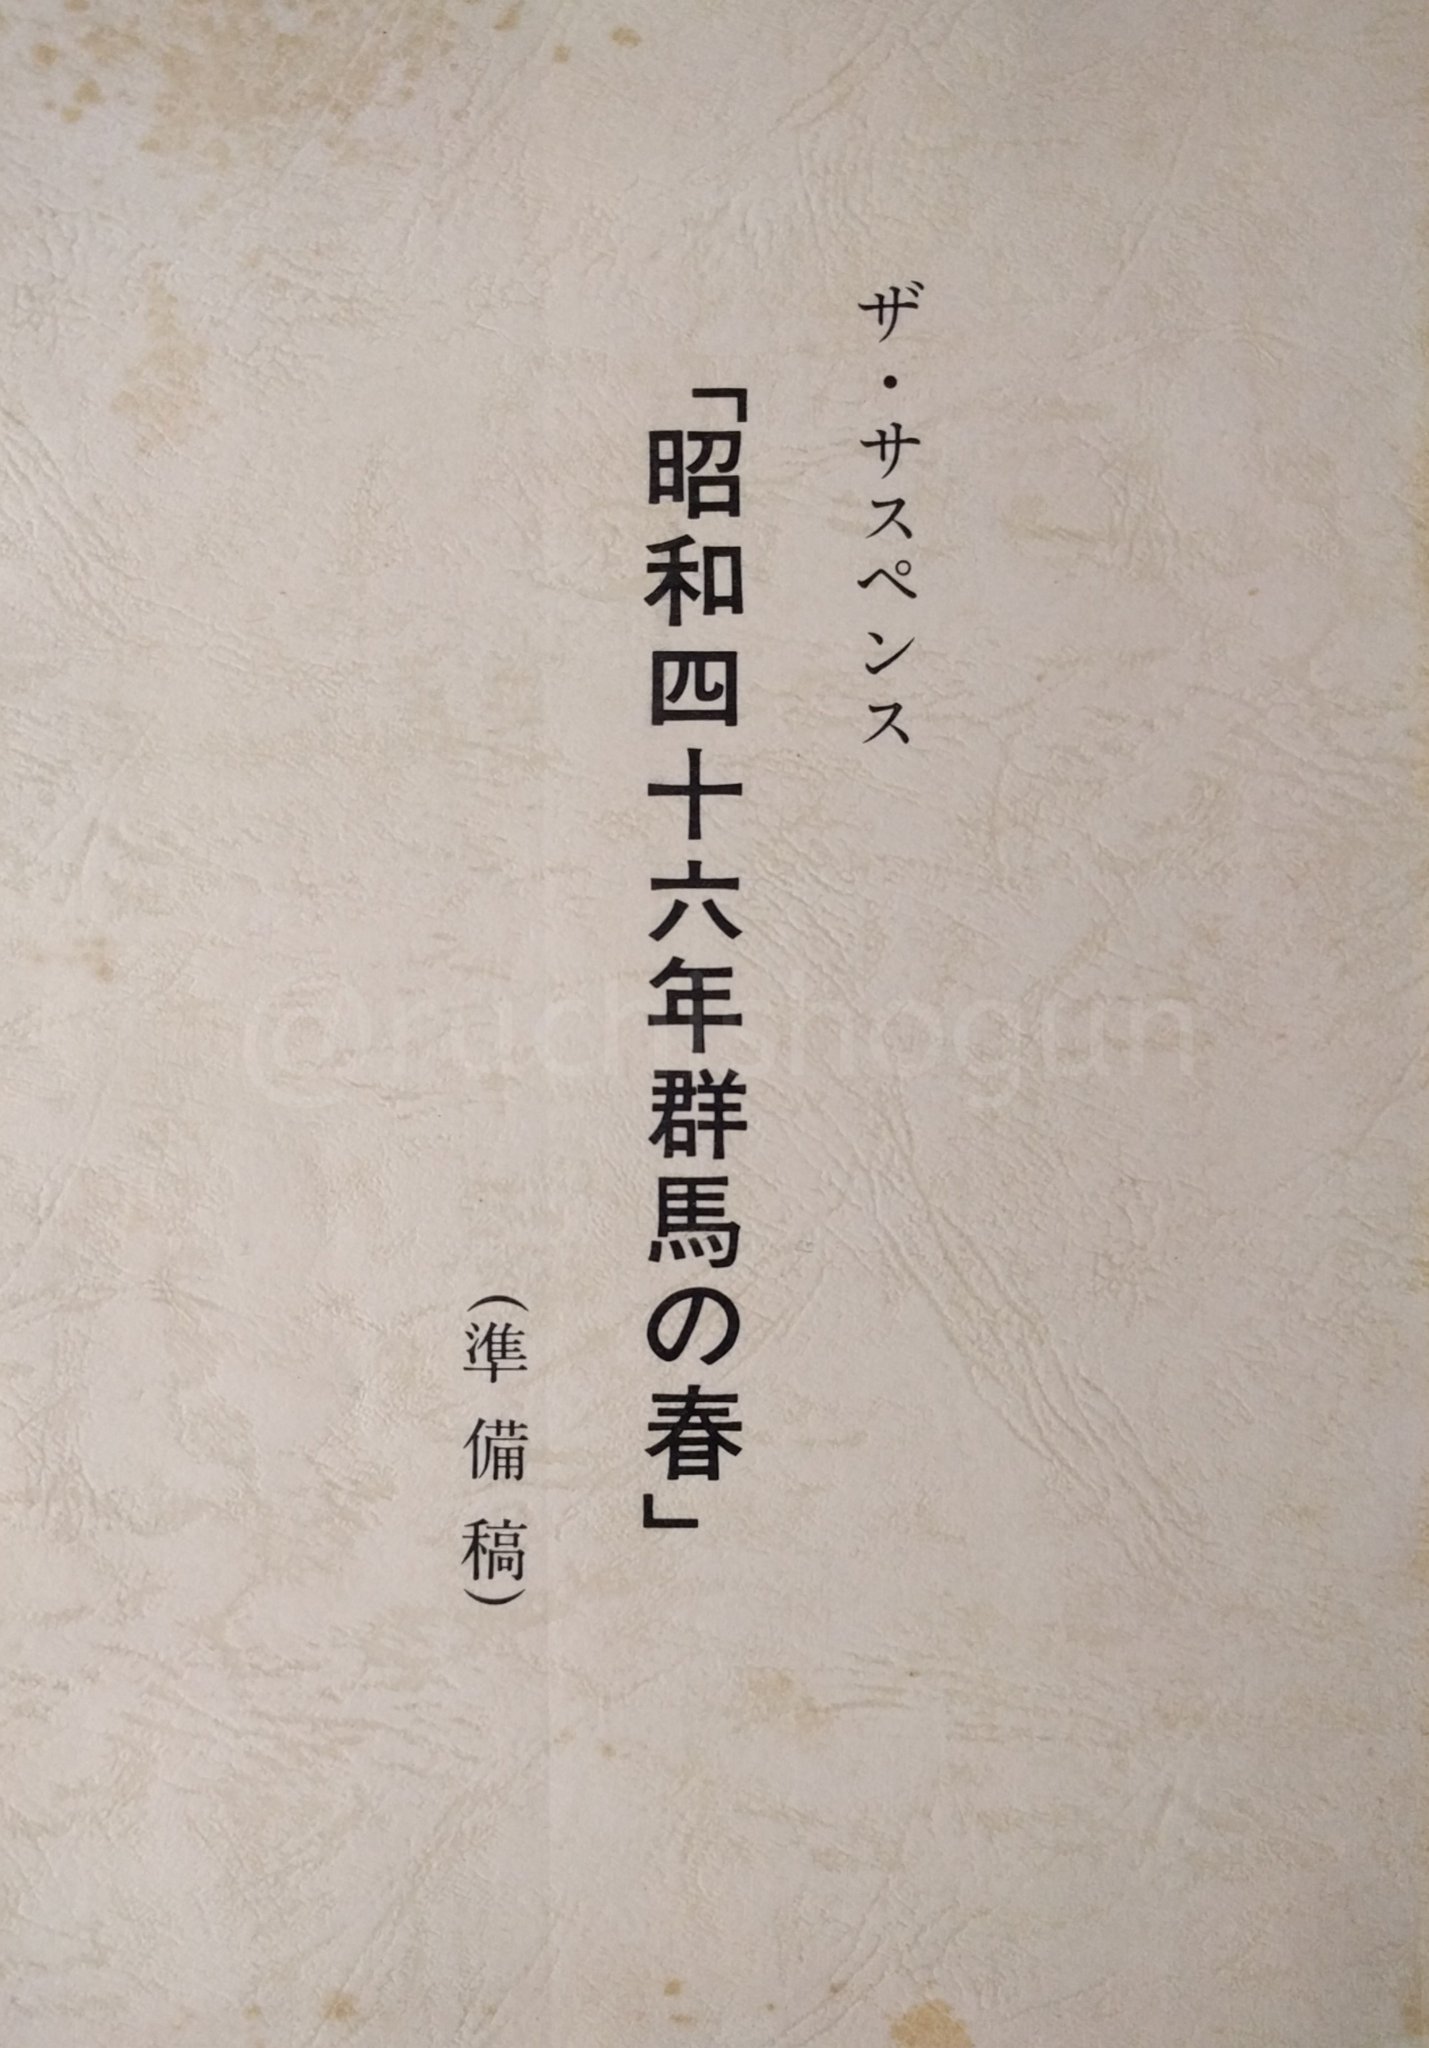 ザ・サスペンス
「昭和四十六年群馬の春」
(準備稿)